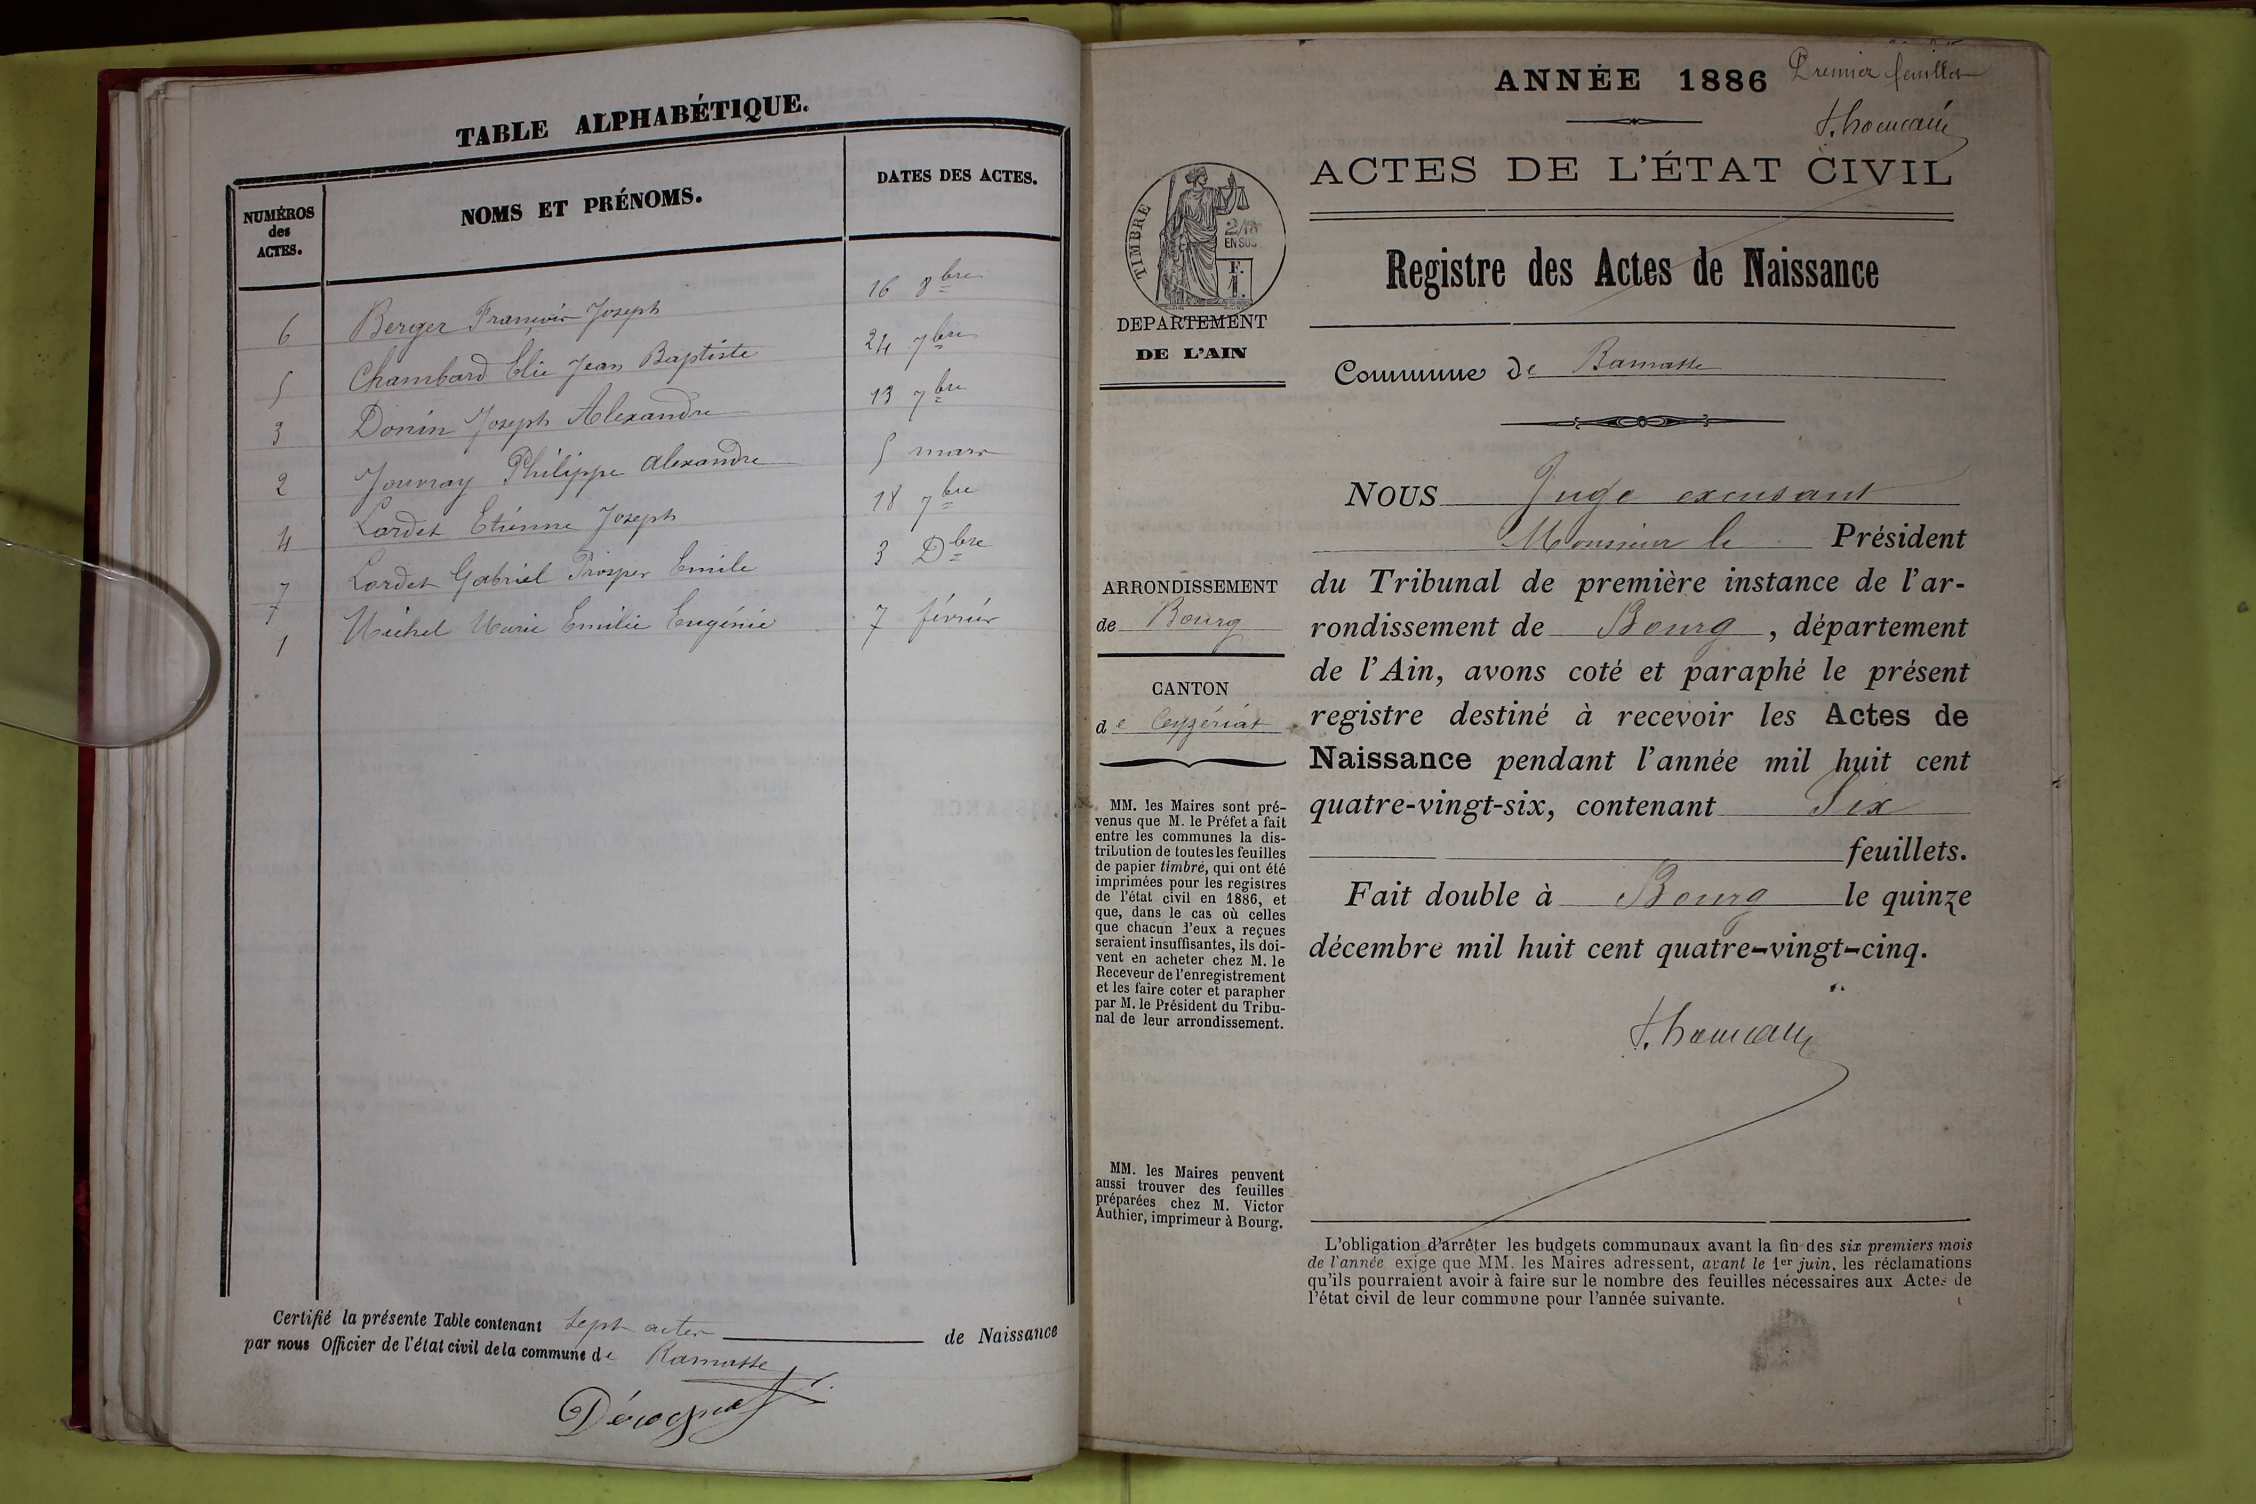 TABLE ALPHABÉTIQUE.
NUMÉROS des ACTES. NOMS ET PRÉNOMS. DATES DES ACTES.
6 Berger François Joseph 16 8bre
5 Chambard Elie Jean Baptiste 24 7bre
3 Donin Joseph Alexandre 13 7bre
2 Jouvray Philippe Alexandre 5 mars
4 Lardet Etienne Joseph 18 7bre
7 Lardet Gabriel Prosper Emile 3 Dbre
1 Michel Marie Emilie Eugénie 7 février
Certifié la présente Table contenant sept actes de Naissance
par nous Officier de l'état civil de la commune de Ramasse
ANNÉE 1886
Premier feuillet
ACTES DE L'ÉTAT CIVIL
TIMBRE
2/10
EN SUS
F.
1.
DEPARTEMENT
DE L'AIN
Registre des Actes de Naissance
Commune de Ramasse
ARRONDISSEMENT
de Bourg
CANTON
de Ceyzériat
MM. les Maires sont pré-
venus que M. le Préfet a fait
entre les communes la dis-
tribution de toutes les feuilles
de papier timbré, qui ont été
imprimées pour les registres
de l'état civil en 1886, et
que, dans le cas où celles
que chacun d'eux a reçues
seraient insuffisantes, ils doi-
vent en acheter chez M. le
Receveur de l'enregistrement
et les faire coter et parapher
par M. le Président du Tribu-
nal de leur arrondissement.
MM. les Maires peuvent
aussi trouver des feuilles
préparées chez M. Victor
Authier, imprimeur à Bourg.
NOUS Juge excusant
Monsieur le Président
du Tribunal de première instance de l'ar-
rondissement de Bourg, département
de l'Ain, avons coté et paraphé le présent
registre destiné à recevoir les Actes de
Naissance pendant l'année mil huit cent
quatre-vingt-six, contenant Six
feuillets.
Fait double à Bourg le quinze
décembre mil huit cent quatre-vingt-cinq.
L'obligation d'arrêter les budgets communaux avant la fin des six premiers mois
de l'année exige que MM. les Maires adressent, avant le 1er juin, les réclamations
qu'ils pourraient avoir à faire sur le nombre des feuilles nécessaires aux Actes de
l'état civil de leur commune pour l'année suivante.